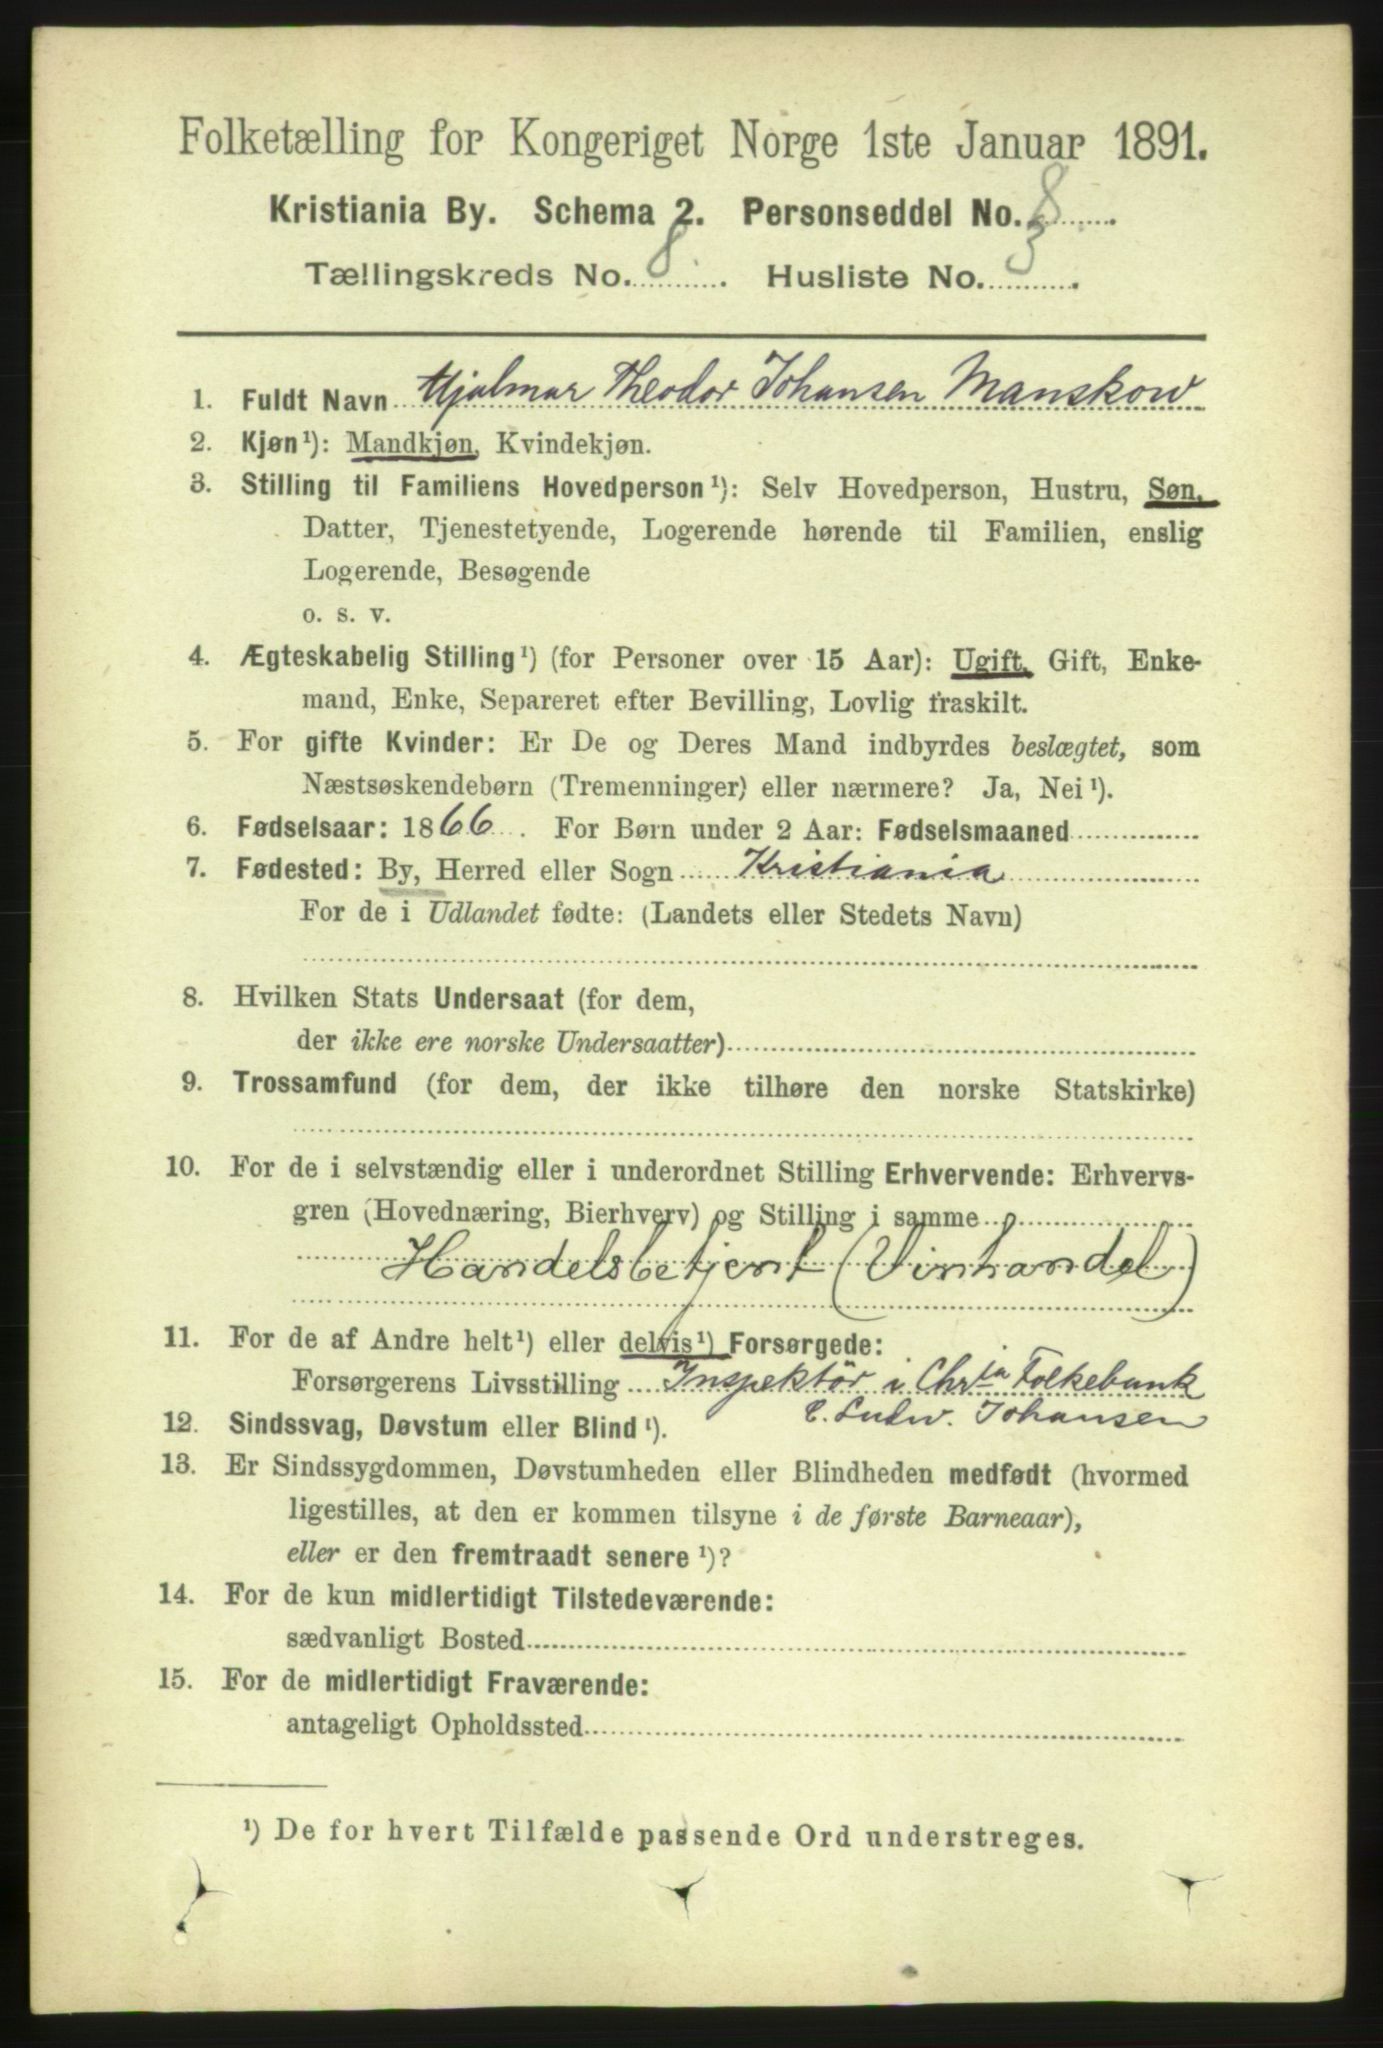 Folketælling for Kongeriget Norge 1ste Januar 1891.
Kristiania By. Schema 2. Personseddel No. 8
Tællingskreds No. 8. Husliste No. 3
1. Fuldt Navn Hjalmar Theodor Johansen Manskow
2. Kjøn¹): Mandkjøn, Kvindekjøn.
3. Stilling til Familiens Hovedperson¹): Selv Hovedperson, Hustru, Søn,
Datter, Tjenestetyende, Logerende hørende til Familien, enslig
Logerende, Besøgende
o. s. v.
4. Ægteskabelig Stilling¹) (for Personer over 15 Aar): Ugift, Gift, Enke-
mand, Enke, Separeret efter Bevilling, Lovlig fraskilt.
5. For gifte Kvinder: Er De og Deres Mand indbyrdes beslægtet, som
Næstsøskendebørn (Tremenninger) eller nærmere? Ja, Nei¹).
6. Fødselsaar: 1866. For Børn under 2 Aar: Fødselsmaaned
7. Fødested: By, Herred eller Sogn Kristiania
For de i Udlandet fødte: (Landets eller Stedets Navn)
8. Hvilken Stats Undersaat (for dem,
der ikke ere norske Undersaatter)
9. Trossamfund (for dem, der ikke tilhøre den norske Statskirke)
10. For de i selvstændig eller i underordnet Stilling Erhvervende: Erhvervs-
gren (Hovednæring, Bierhverv) og Stilling i samme
Handelsbetjent (Vinhandel)
11. For de af Andre helt¹) eller delvis¹) Forsørgede:
Forsørgerens Livsstilling Inspektör i Chria Folkebank
C. Ludw. Johansen
12. Sindssvag, Døvstum eller Blind¹).
13. Er Sindssygdommen, Døvstumheden eller Blindheden medfødt (hvormed
ligestilles, at den er kommen tilsyne i de første Barneaar),
eller er den fremtraadt senere¹)?
14. For de kun midlertidigt Tilstedeværende:
sædvanligt Bosted
15. For de midlertidigt Fraværende:
antageligt Opholdssted
¹) De for hvert Tilfælde passende Ord understreges.